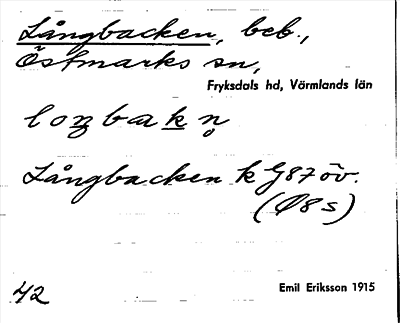 Långbacken, beb.,
Östmarks sn,
Fryksdals hd, Värmlands län
loŋbakn̥
Långbacken k G87öv.
(Ø8s)
42
Emil Eriksson 1915